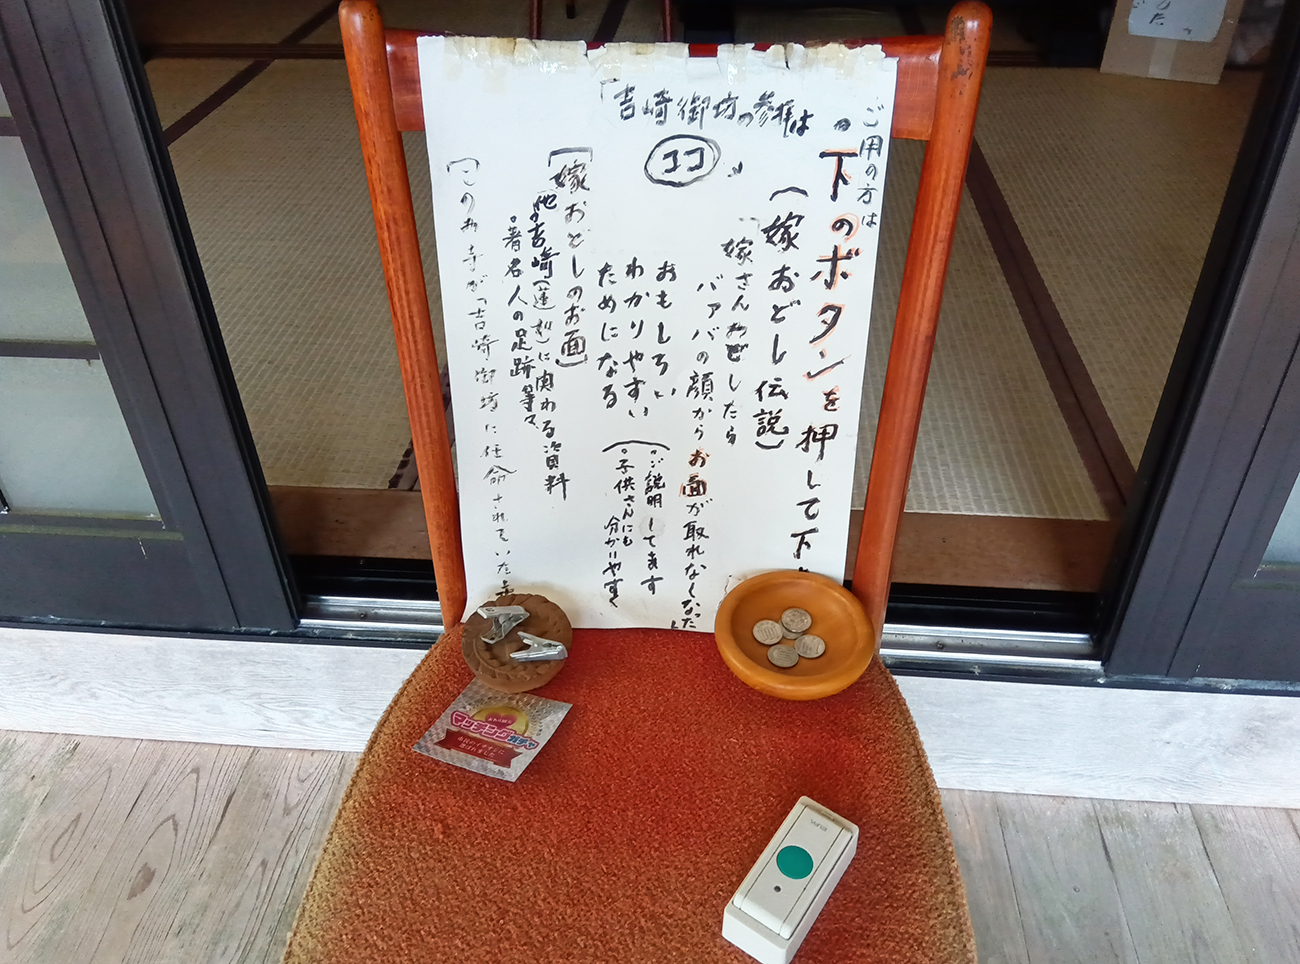 ご用の方は
下のボタンを押して下
「吉崎御坊の参拝は
ココ
」
(嫁おどし伝説)
「嫁さんおどしたら
バァバの顔からお面が取れなくなった」
おもしろい
わかりやすい
ためになる
(。ご説明してます
。子供さんにも
分かりやすく
[嫁おどしのお面]
他の吉崎(蓮如)に関わる資料
。著名人の足跡等々
[このお寺が「吉崎御坊に任命されていた
マッチング